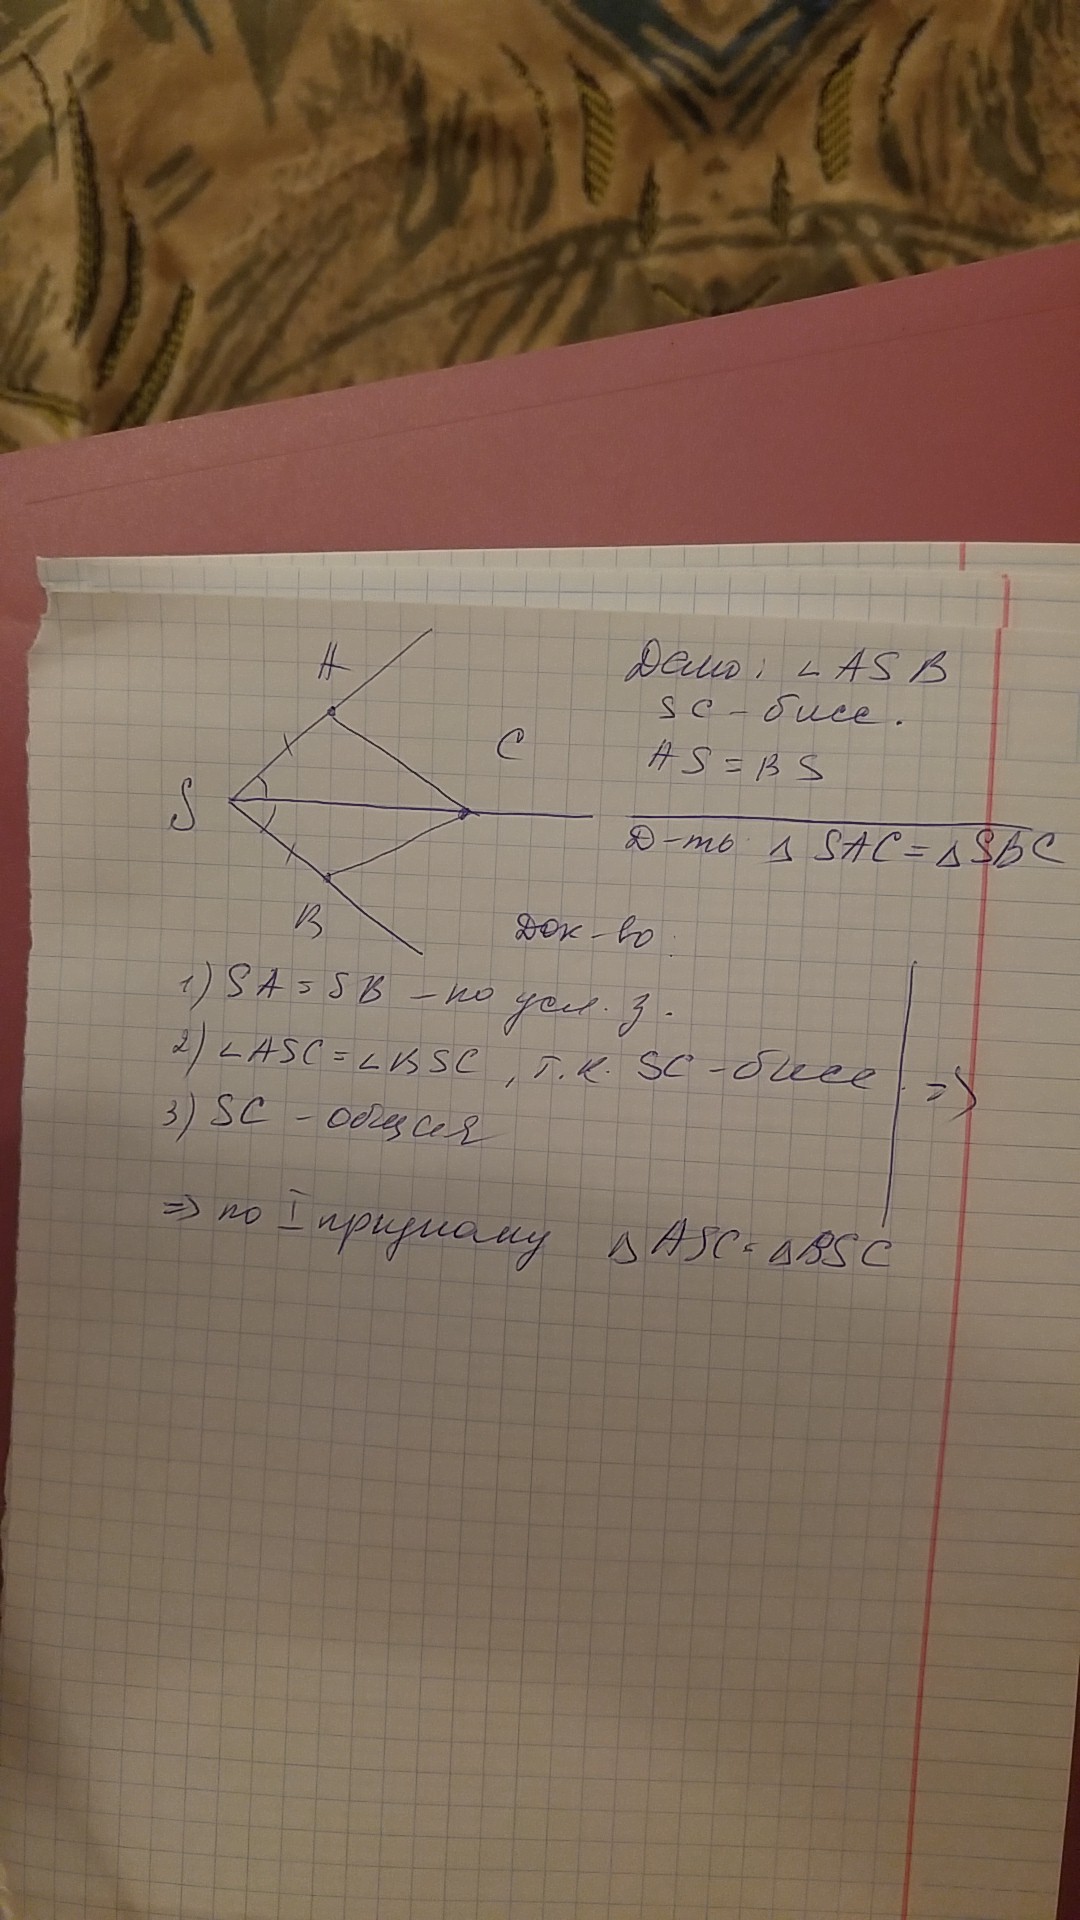 A
C
S
B
Дано: ∠ASB
SC - бисс.
AS = BS
Д-ть: △ SAC = △SBC
Док-во:
1) SA = SB - по усл. з.
2) ∠ASC = ∠BSC, т.к. SC - бисс. =>
3) SC - общая
=> по I признаку △ ASC = △BSC